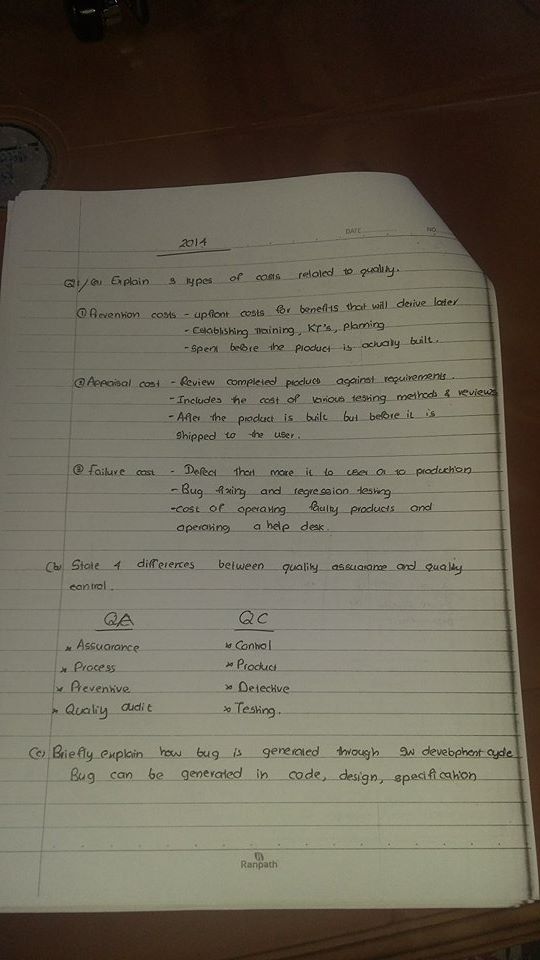 DATE NO.
2014
Q1/(a) Explain 3 types of costs related to quality.
① Prevention costs - upfront costs for benefits that will derive later
- Establishing training, KT's, planning
- spent before the product is actually built.
② Appraisal cost - Review completed products against requirements.
- Includes the cost of various testing methods & reviews
- After the product is built but before it is
shipped to the user.
③ Failure cost - Defect that move it to user or to production
- Bug fixing and regression testing
- cost of operating faulty products and
operating a help desk.
(b) State 4 differences between quality assuarance and quality
control.
QA QC
* Assuarance * Control
* Process * Product
* Preventive * Detective
* Quality audit * Testing.
(c) Briefly explain how bug is generated through sw development cycle
Bug can be generated in code, design, specification
Ranpath